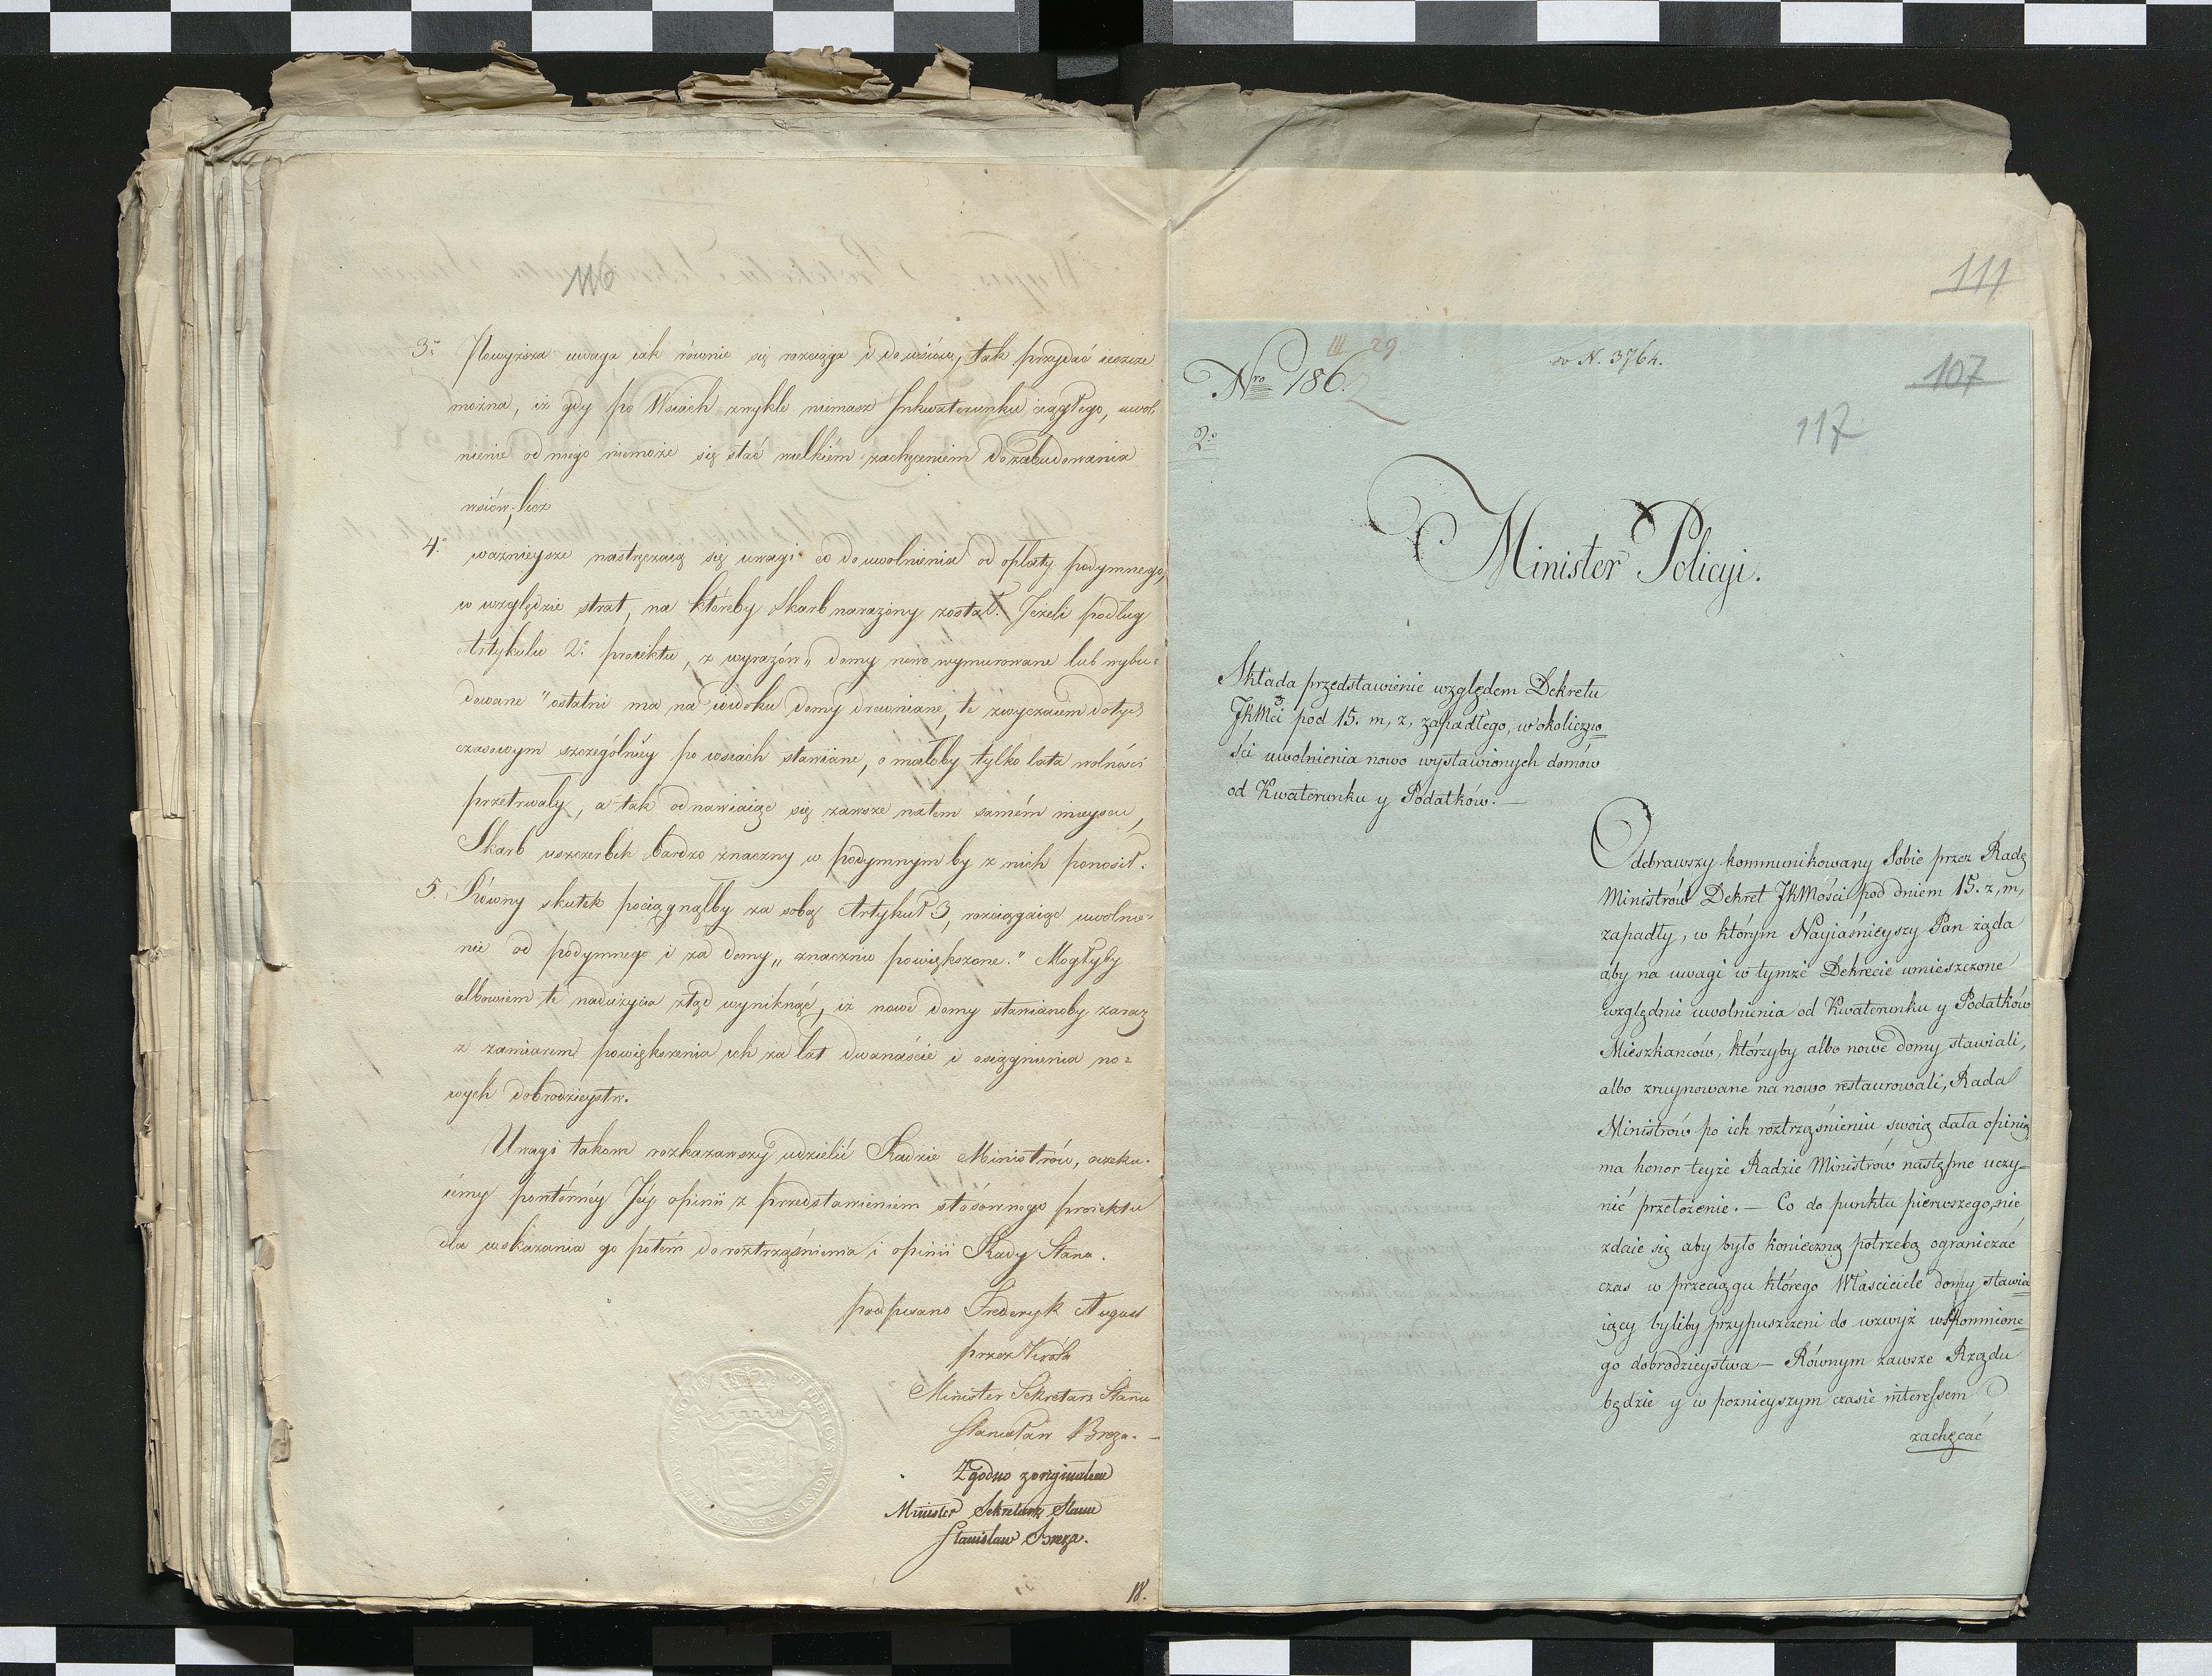 116
3º Powyższa uwaga iak równie się rozciąga i do wsiów, tak przydać ieszcze
można, iż gdy po Wsiach zwykle niemasz Inkwaterunku ciągłego, uwol-
nienie od niego niemoże się stać wielkiém zachęceniem do zabudowania
wsiów, lecz
4º ważnieysze nastręczaią się uwagi co do uwolnienia od opłaty podymnego,
w względzie strat, na któreby Skarb narażony został. Jeżeli podług
Artykułu 2º proiektu, z wyrazów „ domy nowo wymurowane lub wybu=
dowane " ostatni ma na widoku domy drewniane, te zwyczaiem dotych
czasowym szczególniéy po wsiach stawiane, o małoby tylko lata wolności
przetrwały, a tak odnawiaiąc się zawsze na tem samém mieyscu,
Skarb uszczerbek bardzo znaczny w podymnym by z nich ponosił.
5. Równy skutek pociągnąłby za sobą Artykuł 3, rozciągaiąc uwolnie-
nie od podymnego i za domy „ znacznie powiększone." Mogłyby
albowiem te nadużycia ztąd wyniknąć, iż nowe domy stawianoby zaraz
z zamiarem powiększenia ich za lat dwanaście i osiągnienia no=
wych dobrodzieystw.
Uwagi takowe rozkazawszy udzielić Radzie Ministrów, oczeku-
iémy powtórnéy Jéy opinii z przedstawieniem stósownego proiektu
dla wskazania go potém do roztrząśnienia i opinii Rady Stanu.
podpisano Frederyk August
przez Króla
Minister Sekretarz Stanu
Stanisław Breza. -
Zgodno z originałem
Minister Sekretarz Stanu
Stanisław Breza.
18.
111
III 29
Nro 186.
N. 3764.
107
117
2º
Minister Policyi.
Składa przedstawienie względem Dekretu
JKMci pod 15. m, z, zapadłego, w okoliczno=
ści uwolnienia nowo wystawionych domów
od Kwaterunku y Podatków. —
Odebrawszy kommunikowany Sobie przez Radę
Ministrów Dekret JKMości pod dniem 15. z, m,
zapadły, w którym Nayiaśnieyszy Pan żąda
aby na uwagi w tymże Dekrecie umieszczone
względnie uwolnienia od Kwaterunku y Podatków
Mieszkanców, którzyby albo nowe domy stawiali,
albo zruynowane na nowo restaurowali, Rada
Ministrów po ich roztrząśnieniu swoią dała opinią
ma honor teyże Radzie Ministrów następne uczy=
nić przełożenie. — Co do punktu pierwszego, nie
zdaie się aby było konieczną potrzebą ograniczać
czas w przeciągu którego Właściciele domy stawia=
iący byliby przypuszczeni do wzwyż wspomnione=
go dobrodzieystwa — Równym zawsze Rządu
będzie y w poznieyszym czasie interessem
zachęcać